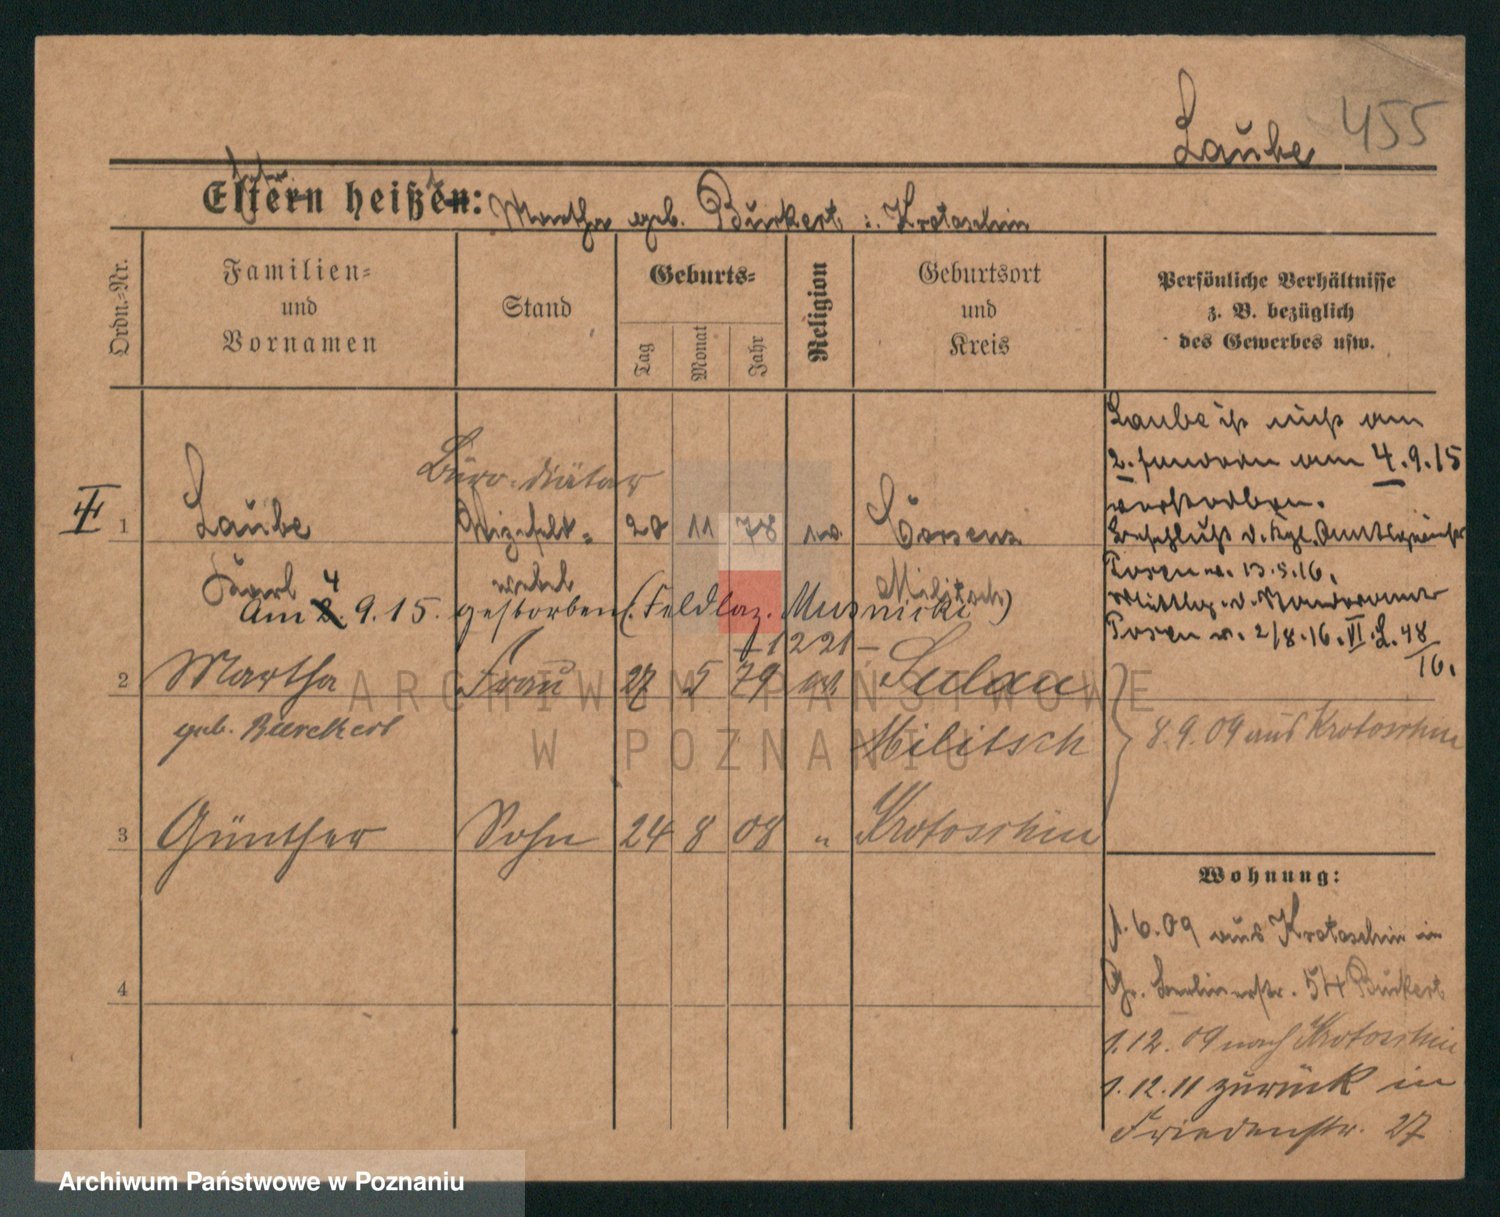 Laube 455
Eltern heißen: Martha geb. Burkert i. Krotoschin
Ordn.-Nr.
Familien-
und
Vornamen
Stand
Geburts-
Tag
Monat
Jahr
Religion
Geburtsort
und
Kreis
Persönliche Verhältnisse
z. B. bezüglich
des Gewerbes usw.
Büro-Diätar
1 Laube Vizefeldw- 20 11 78 ev.
Karl webel Militsch
Am 4. 9. 15. gestorben (Feldlaz. Musnicki)
1221
2 Martha Frau 27 5 79 ev. Sulau
geb. Burckert Militsch
3 Günther Sohn 24 8 08 " Krotoschin
4
Laube ist nicht am
2. sondern am 4.9.15
verstorben.
Beschluß d. Kgl. Amtsgerichts
Posen v. 13.5.16.
Mitthlg. d.
Posen v. 2/8.16. VI. L. 48/16.
8.9.09 aus Krotoschin
Wohnung:
1.6.09 aus Krotoschin in
Gr. Berlinerstr. 54 Burkert
1.12.09 nach Krotoschin
1.12.11 zurück in
Friedenstr. 27
ARCHIWUM PAŃSTWOWE
W POZNANIU
Archiwum Państwowe w Poznaniu